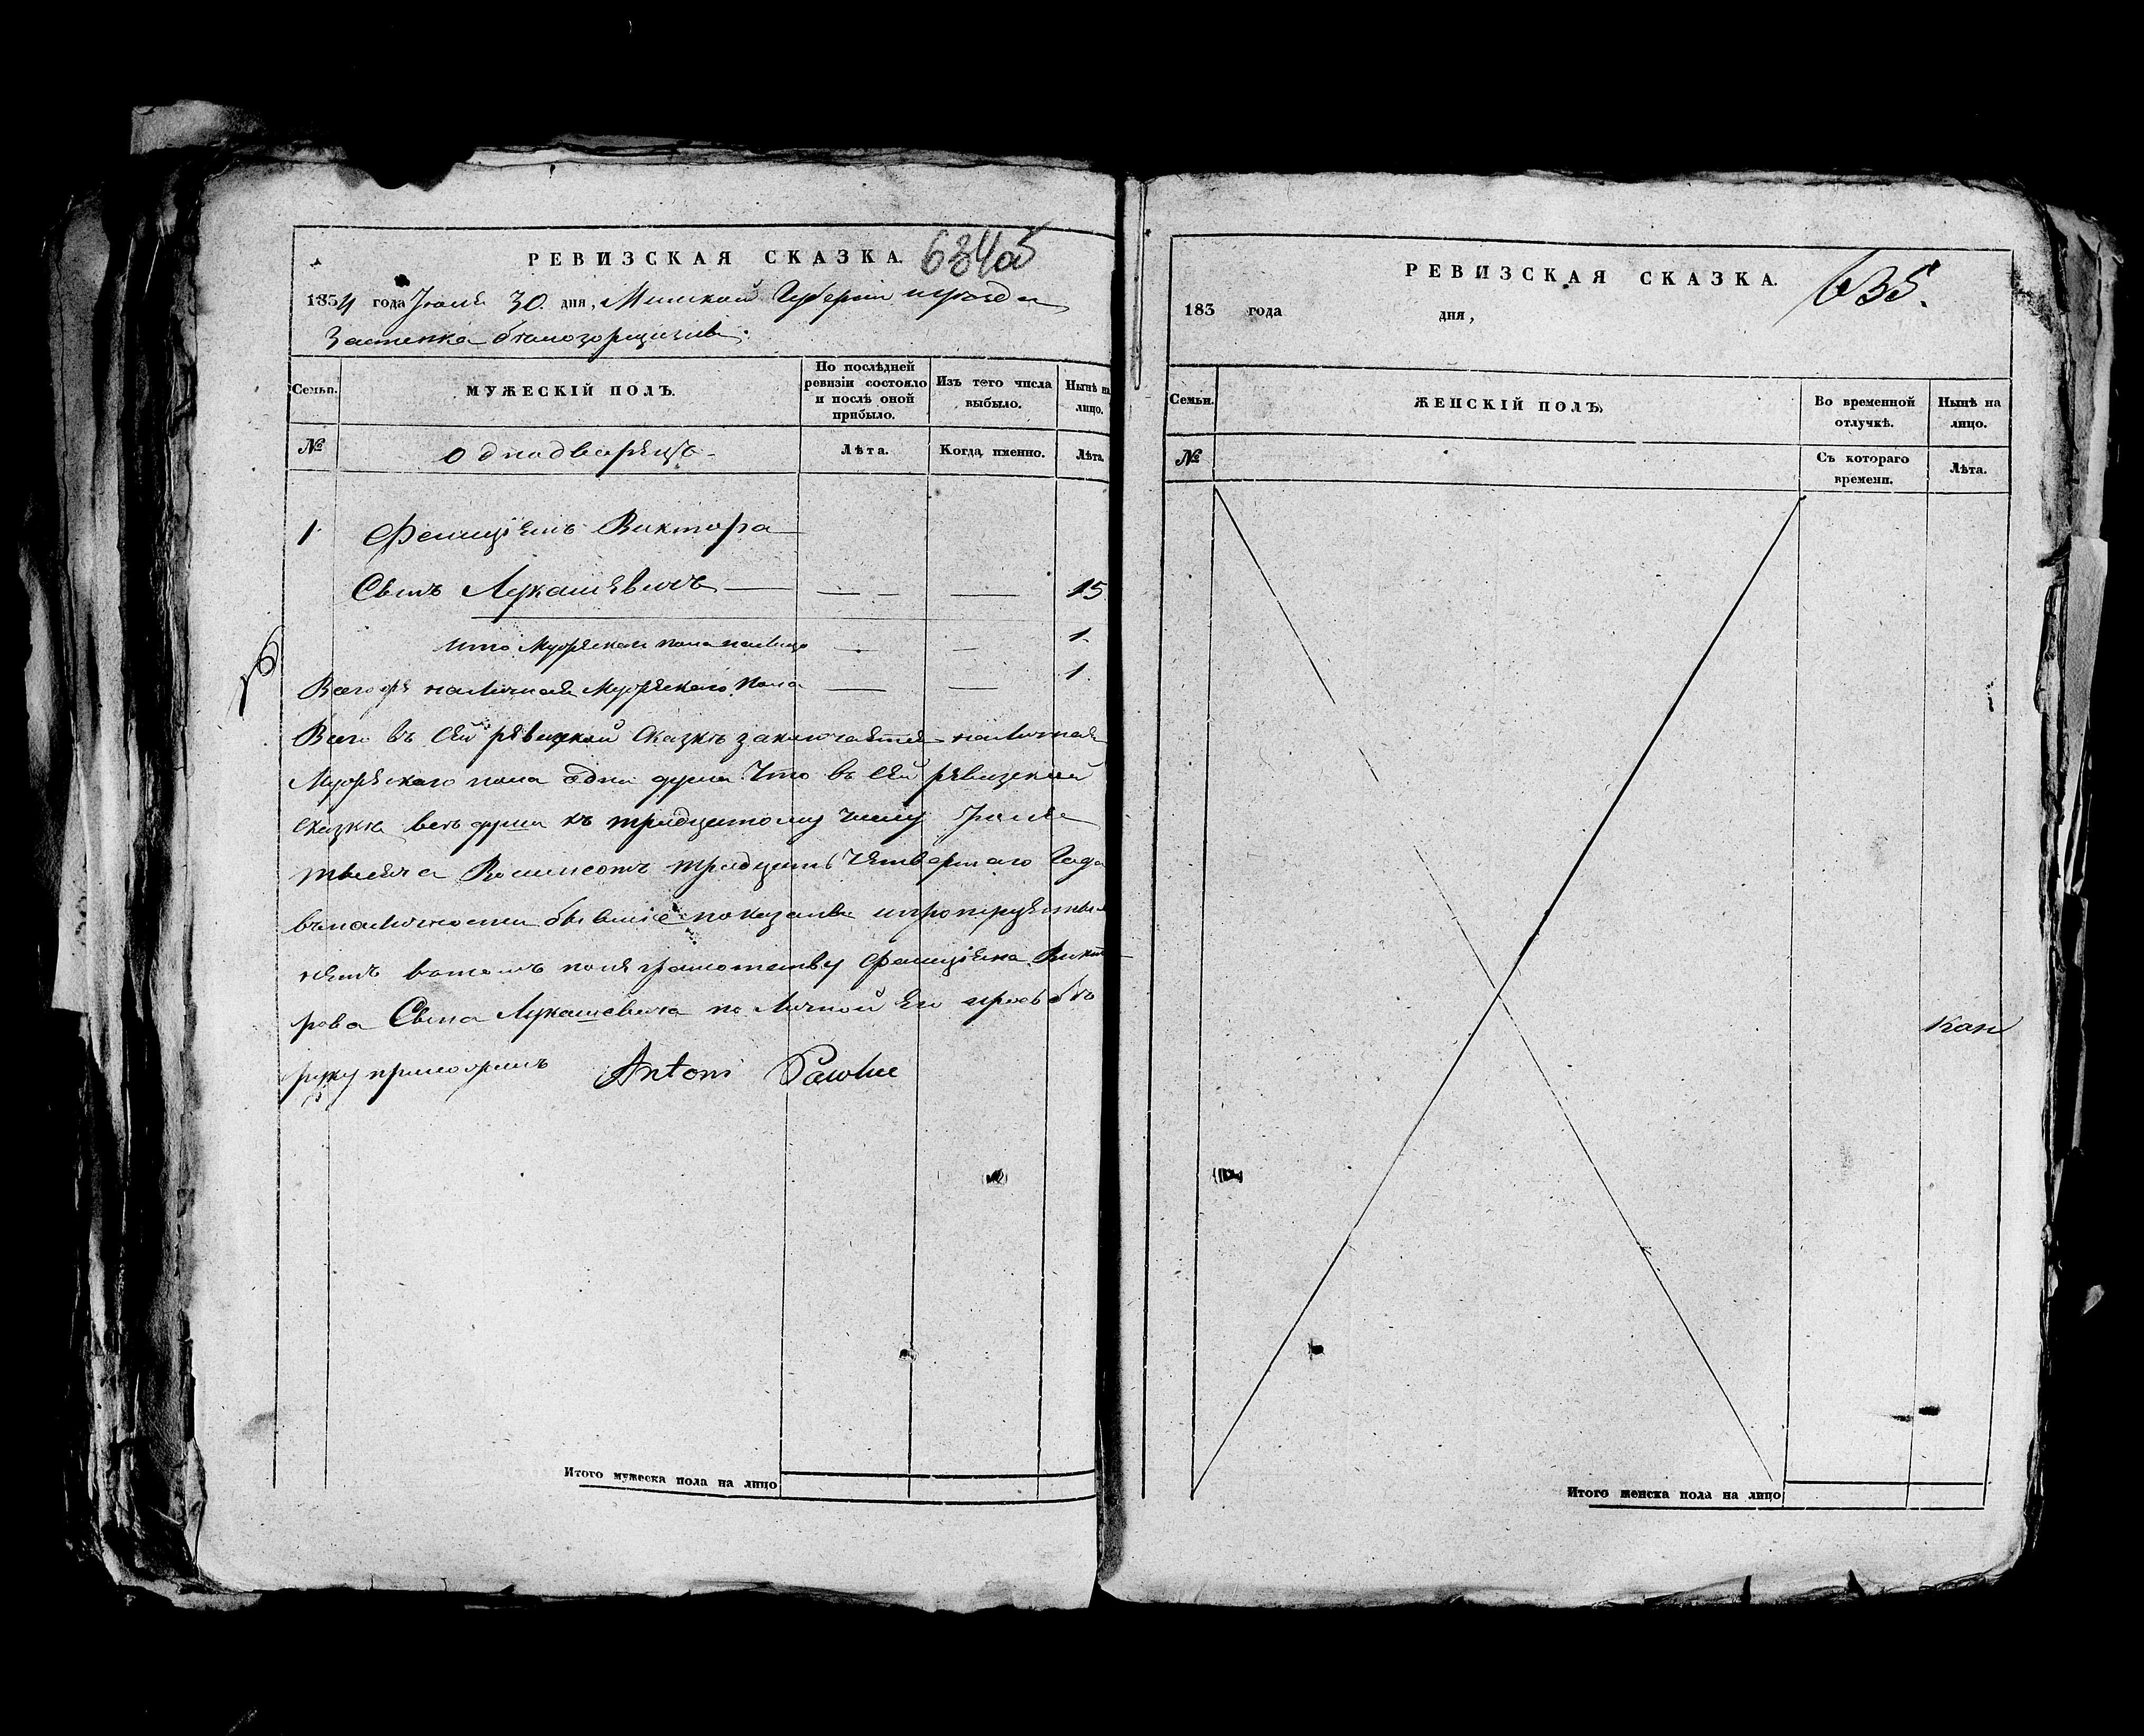 РЕВИЗСКАЯ СКАЗКА.
1834 года Іюня 30. дня, Минской Губерніи и уезда
Застенка
Семьи.
МУЖЕСКІЙ ПОЛЪ.
По послѣдней ревизіи состояло и послѣ оной прибыло.
Изъ того числа выбыло.
Нынѣ на лицо.
№
Однодворецъ
Лѣта.
Когда именно.
Лѣта.
1 Фелиціянъ Виктора
Сынъ Лукашевичъ 15
Итто Мужеска пола налицо 1
Всегоже наличная Мужескаго Пола 1
Всего въ сей ревизкой Сказкѣ заключается наличная
Мужескаго пола одна душа Что въ сей ревизской
сказкѣ всѣ души къ тридцатому числу Іюня
месяца Восимсотъ тридцать Четвертаго Года
въналичности бывшіе показаны ипропущенныхъ
нетъ вотомъ понеграмотству Фелиціяна Викто
рова Сына Лукашевича по Личной Его прозьбѣ
руку приложилъ Antoni
Итого мужеска пола на лицо
РЕВИЗСКАЯ СКАЗКА.
635.
183 года дня,
Семьи.
ЖЕНСКІЙ ПОЛЪ,
Во временной отлучкѣ.
Нынѣ на лицо.
№
Съ котораго времени.
Лѣта.
Итого женска пола на лицо